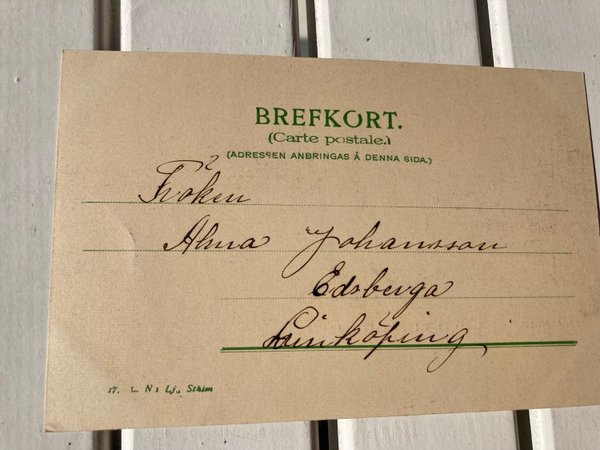 BREFKORT.
(Carte postale.)
(ADRESSEN ANBRINGAS Å DENNA SIDA.)
Fröken
Alma Johansson
Edsberga
Linköping
17. L. N:s Lj., Sthlm